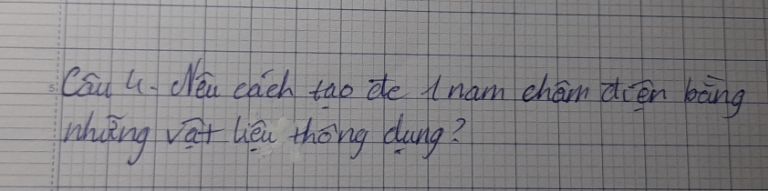 Câu 4. Nêu cách tạo đe 1 nam châm điện bằng
những vật liệu thông dụng?